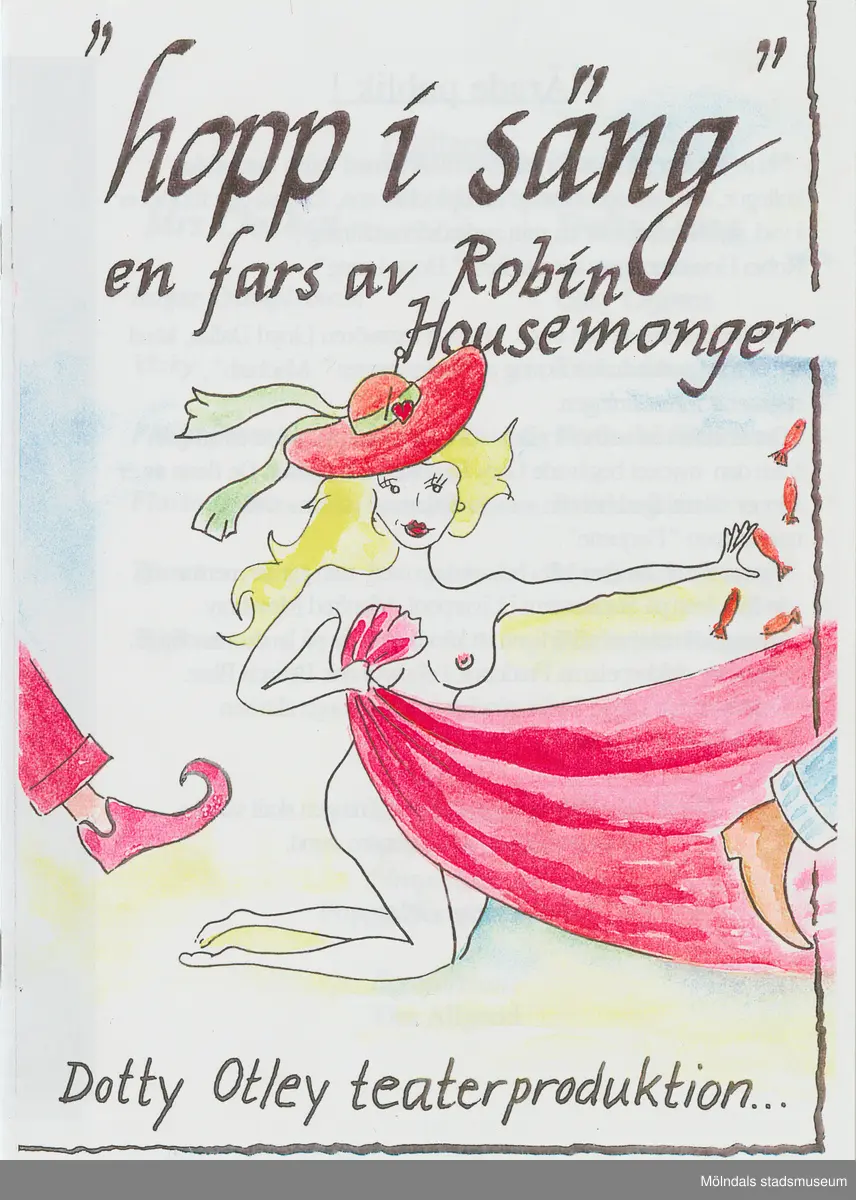 "hopp i säng"
en fars av Robin
Housemonger
Dotty Otley teaterproduktion...
Mölndals stadsmuseum